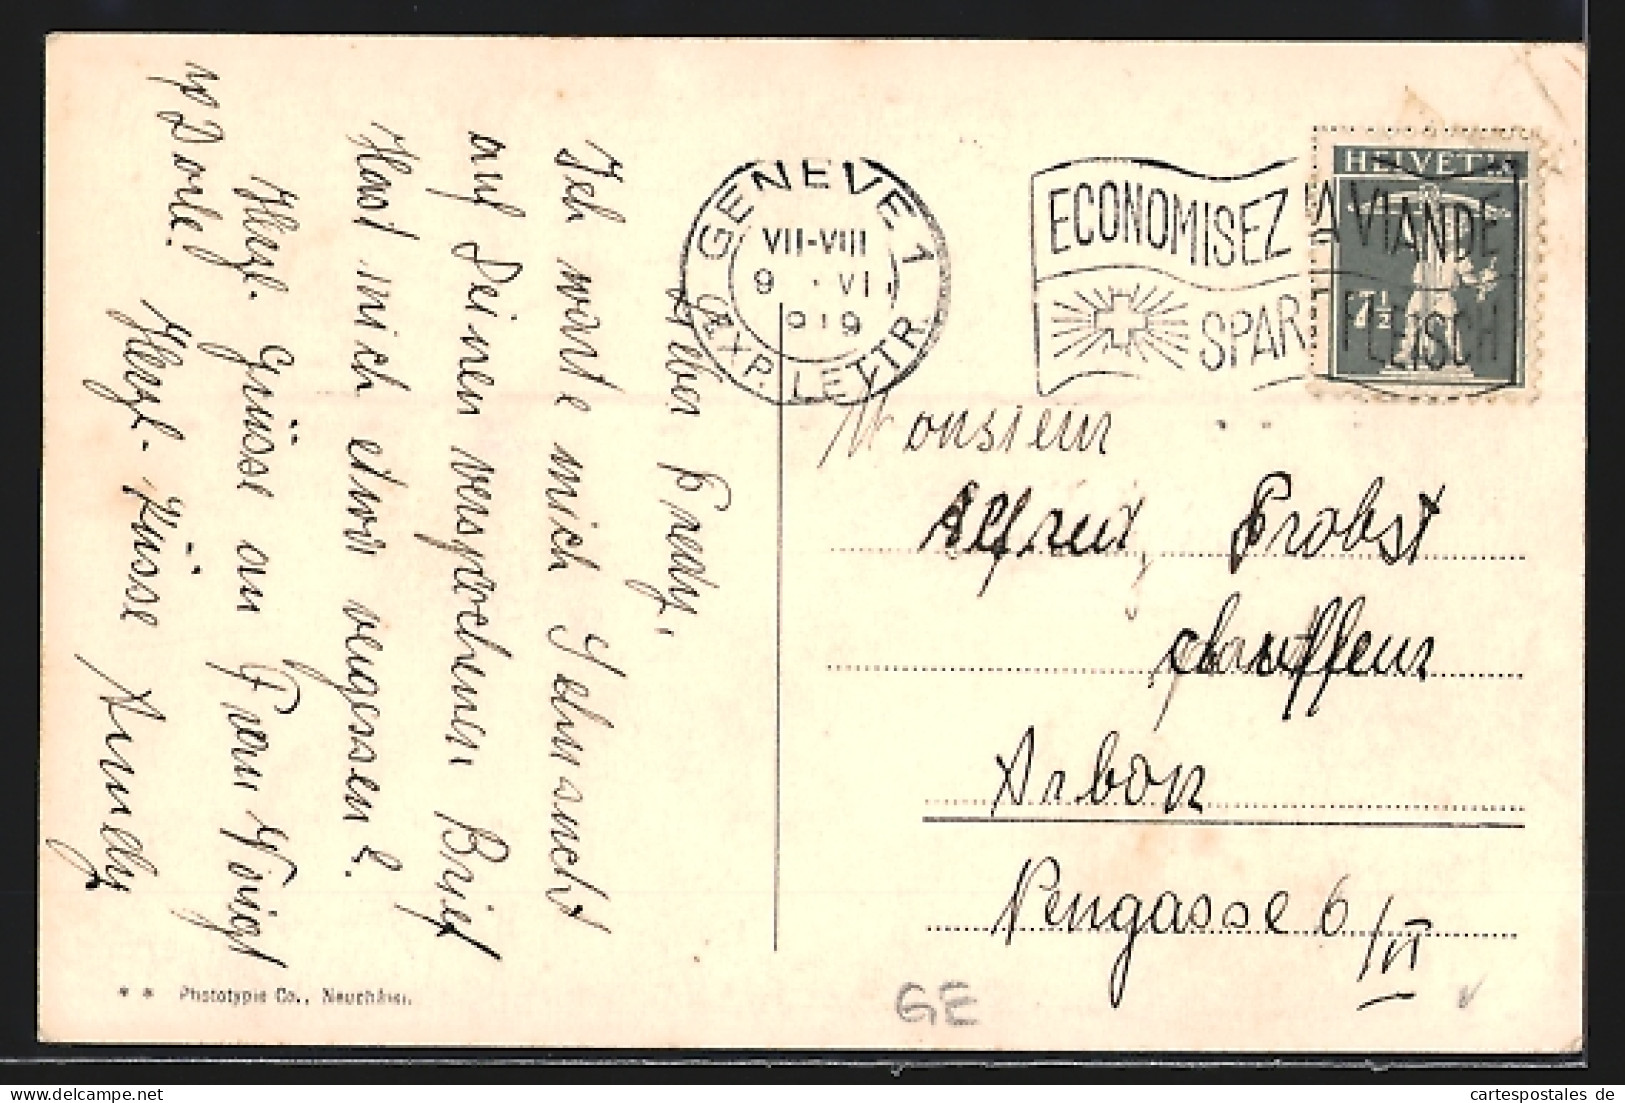 Lieber Fredy,
Ich warte mich Sehnsucht
auf Deinen versprochenen Brief
Hast mich etwa vergessen?
Herzl. Grüsse an Frau Voigt
u Dorli! Herzl. Küsse
** Phototypie Co., Neuchâtel.
GENEVE 1
VII-VIII
9. VI.
919
EXP. LETTR.
ECONOMISEZ LA VIANDE
SPART FLEISCH
HELVETIA
7½
Monsieur
Alfred Probst
chauffeur
Arbon
Neugasse 6/II
GE
cartespostales de